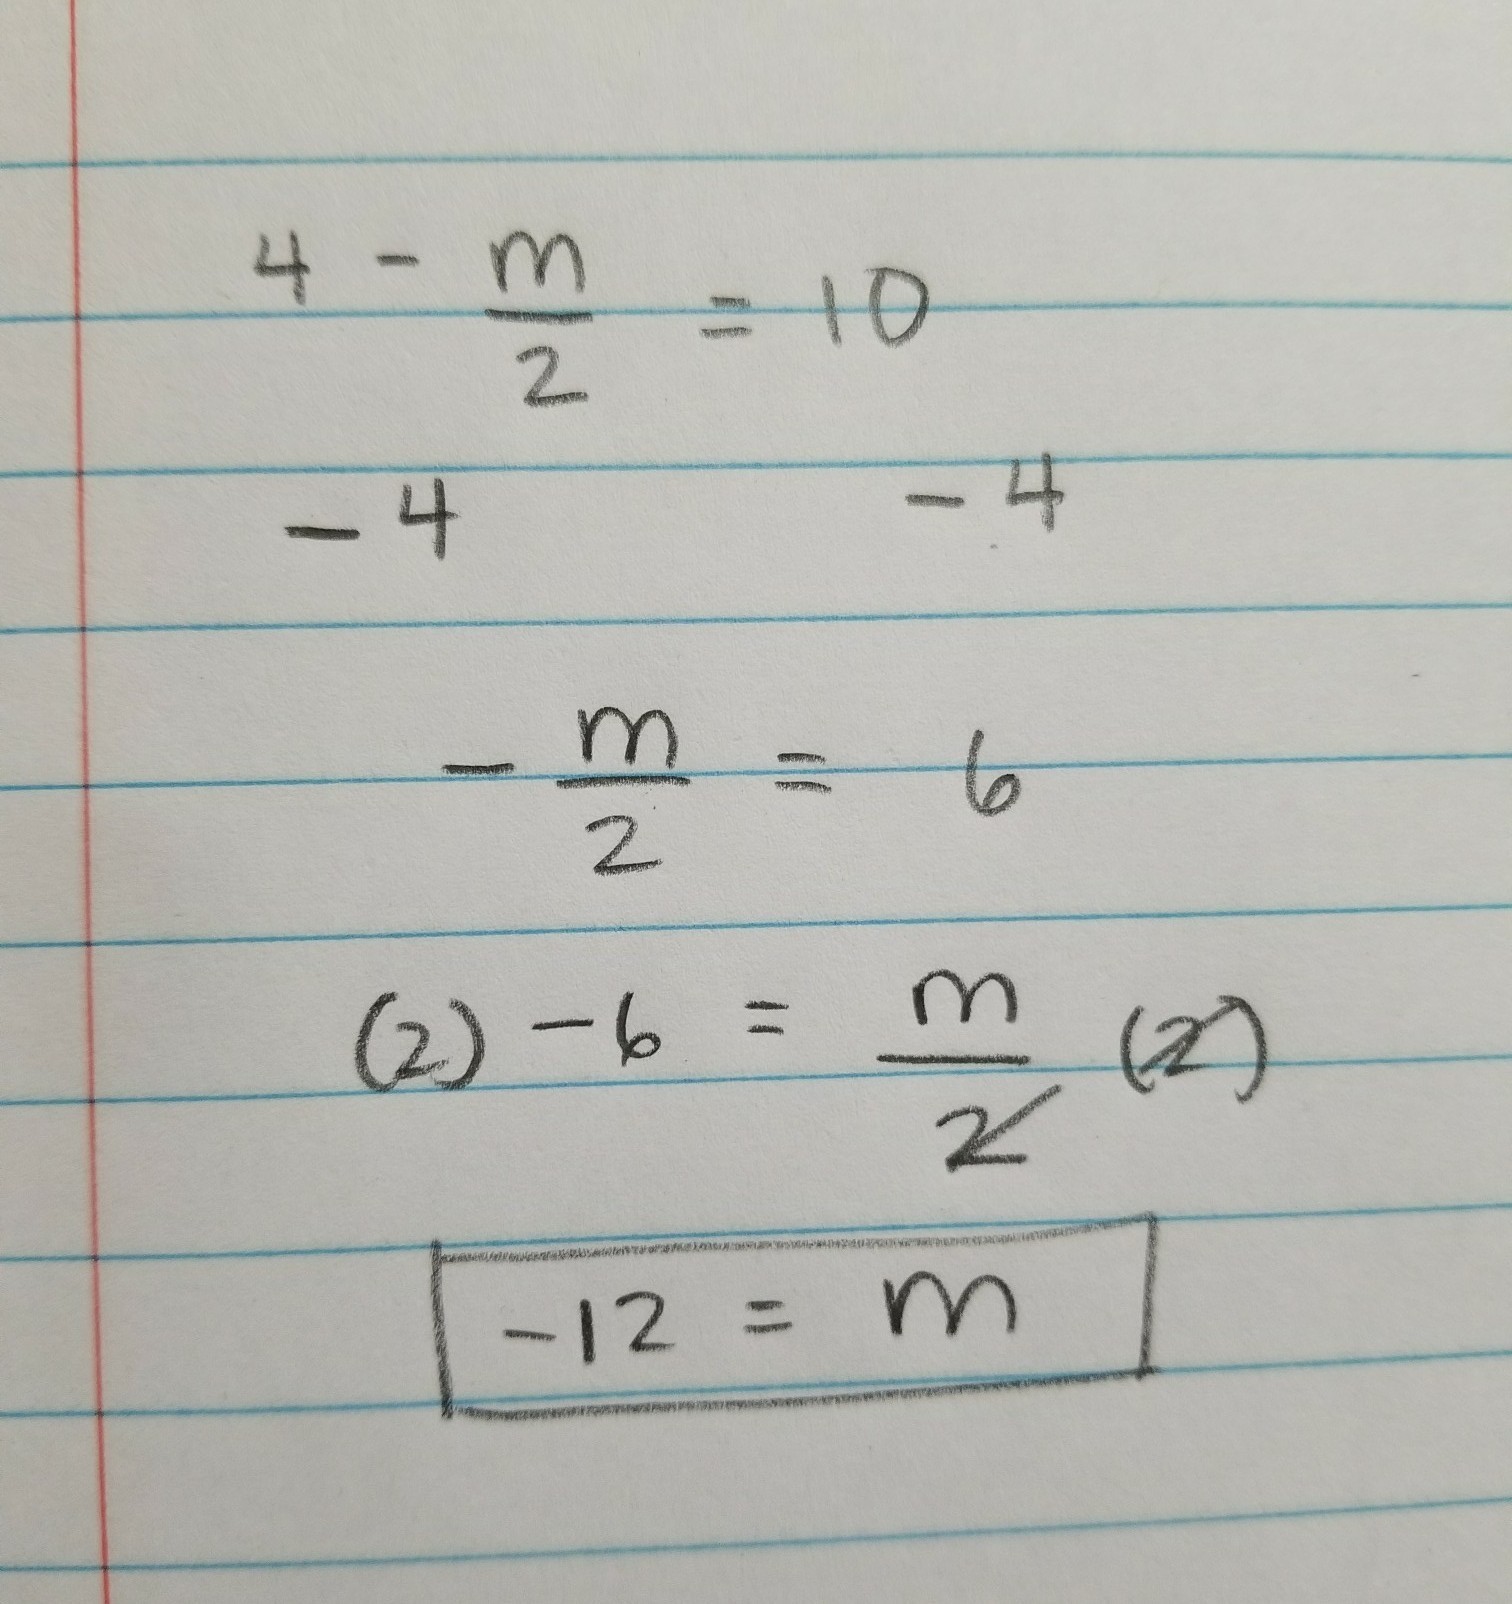 4 - m/2 = 10
- 4 - 4
- m/2 = 6
(2) - 6 = m/2 (2)
-12 = m